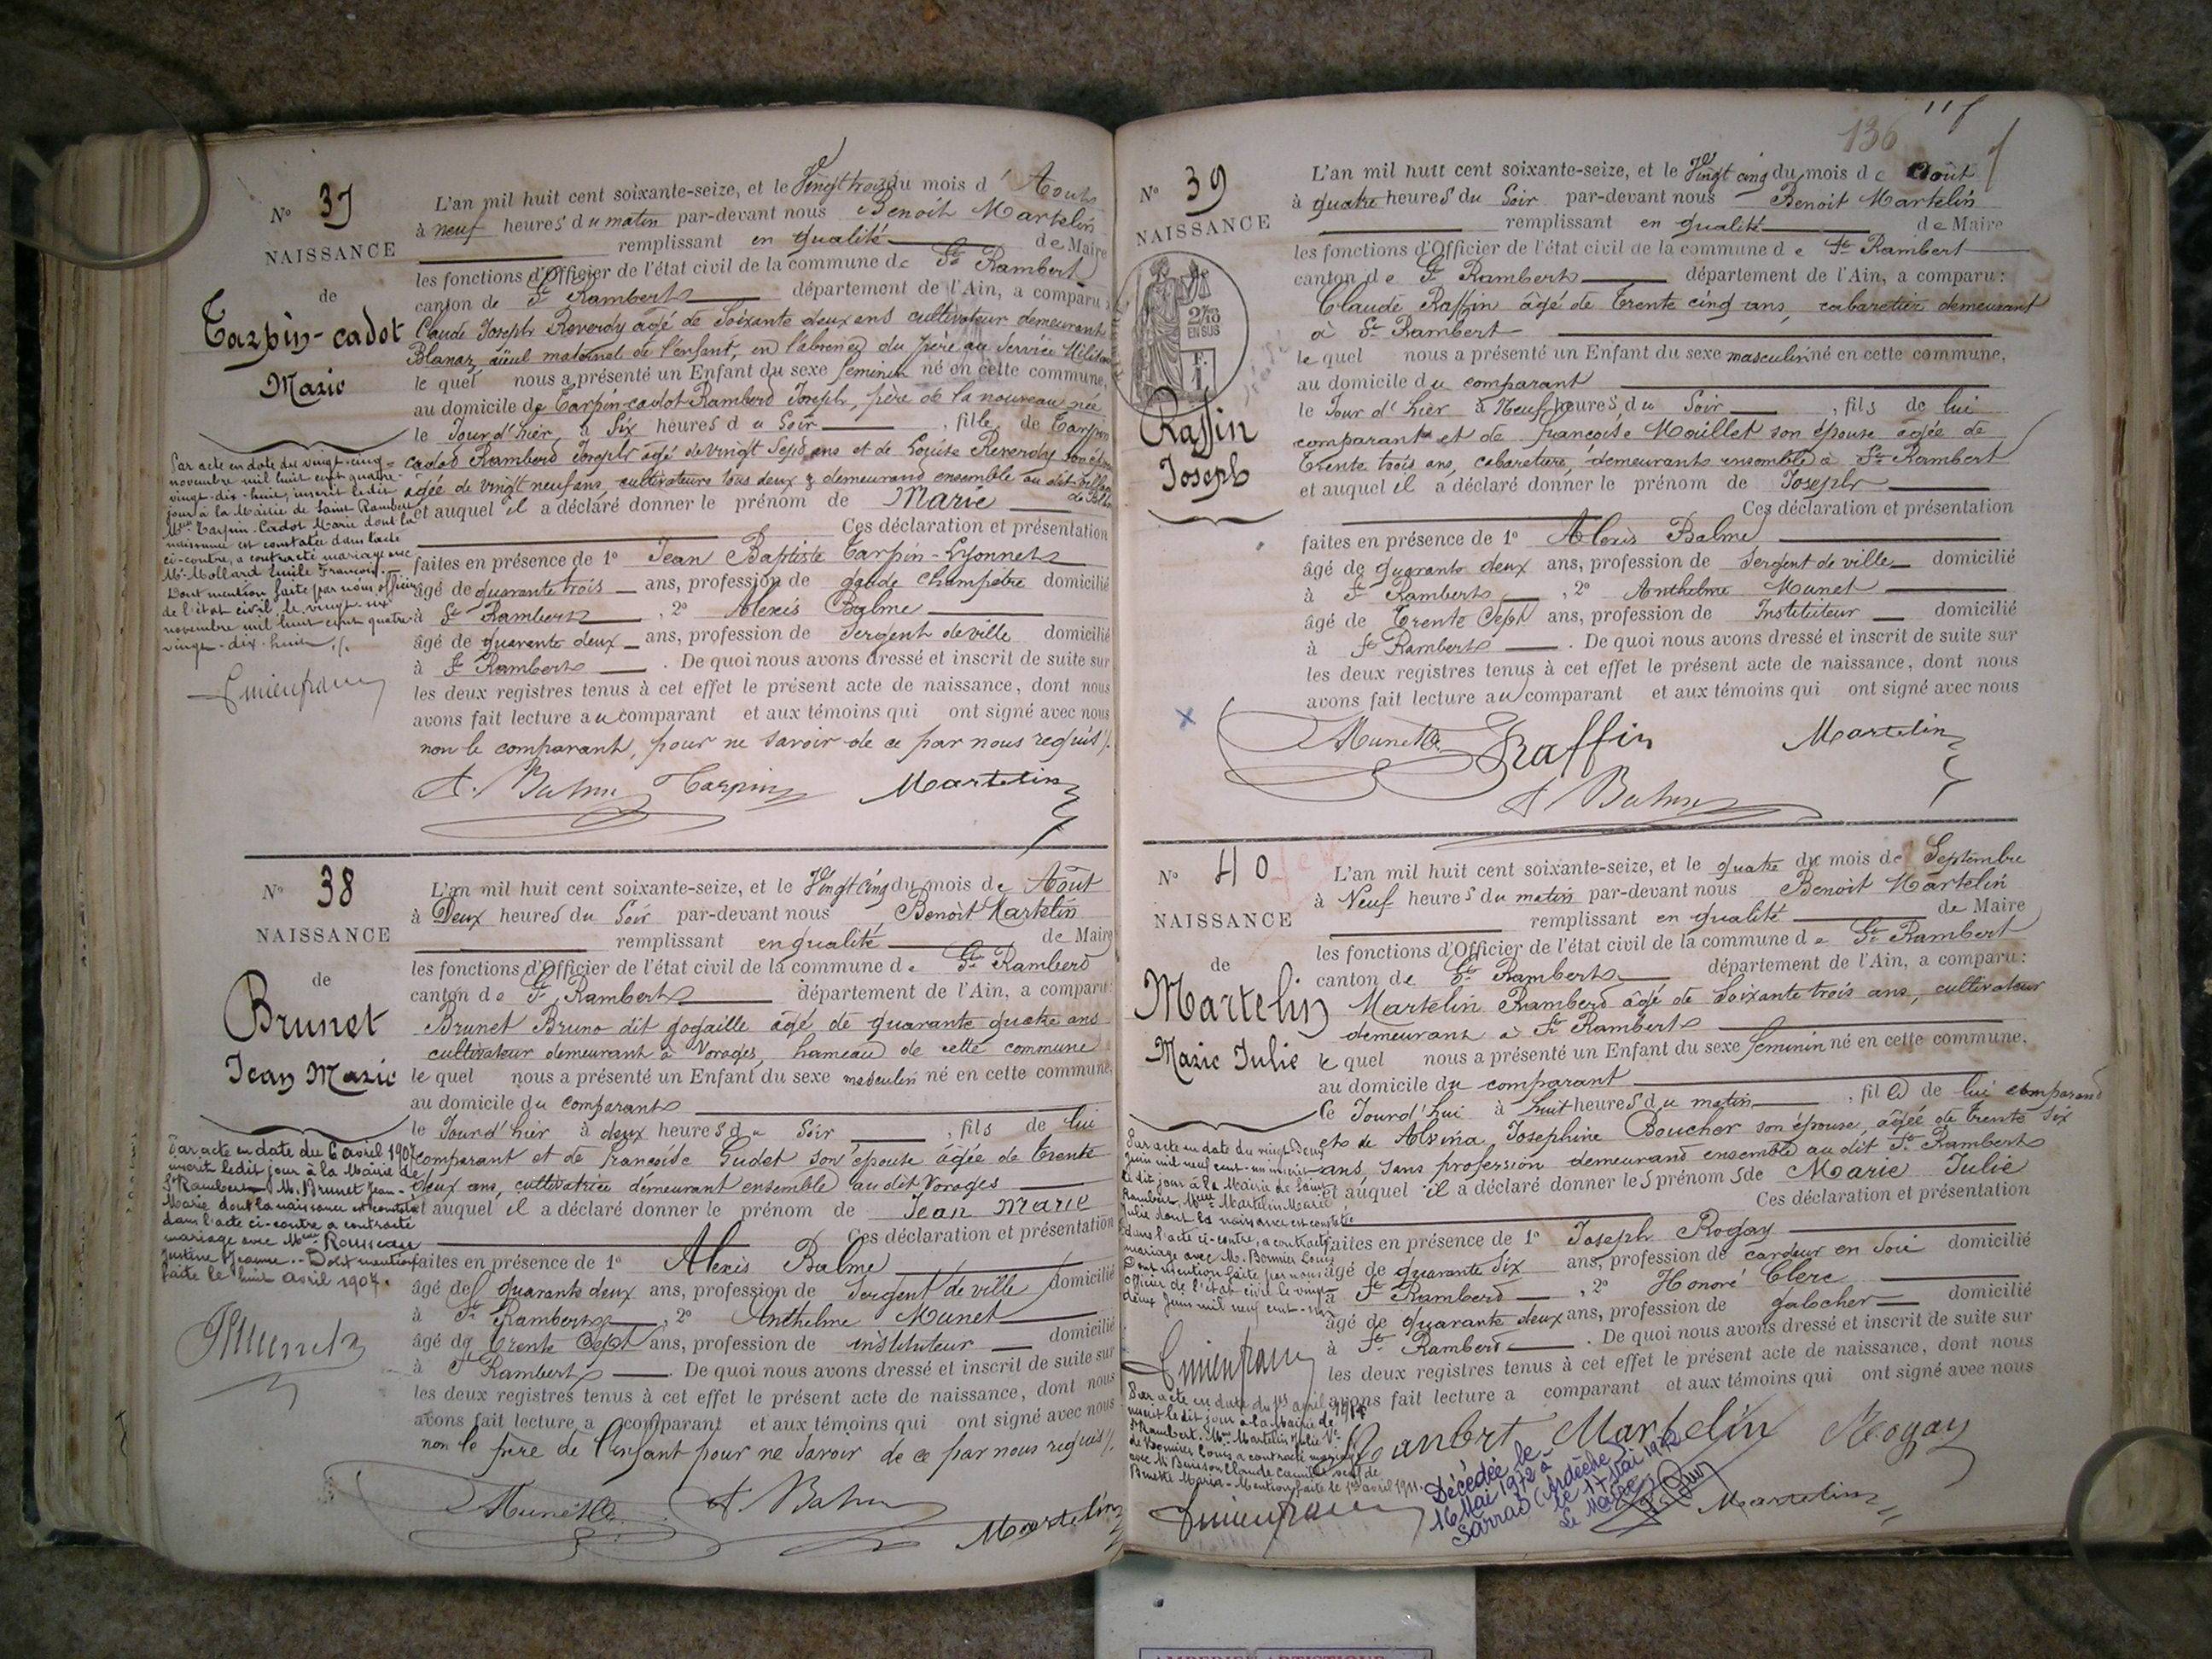 N° 37
NAISSANCE
de
Tarpin-cadot
Marie
L'an mil huit cent soixante-seize, et le Vingt trois du mois d'Aout
à neuf heures du matin par-devant nous Benoit Martelin
remplissant en qualité de Maire
les fonctions d'Officier de l'état civil de la commune de St Rambert
canton de St Rambert département de l'Ain, a comparu
Claude Joseph Reverdy agé de soixante deux ans cultivateur demeurant
Blanaz, aïeul maternel de l'enfant, en l'absence du père au service
le quel nous a présenté un Enfant du sexe feminin né en cette commune,
au domicile de Tarpin-cadot Rambert Joseph, père de la nouveau née
le Jour d'hier, à Six heures du Soir, fille de Tarpin
cadot Rambert Joseph agé de vingt Sept ans et de Louise Reverdy
agée de vingt neuf ans, cultivateurs tous deux demeurant ensemble au dit
et auquel il a déclaré donner le prénom de Marie
Ces déclaration et présentation
faites en présence de 1° Jean Baptiste Tarpin-Lyonnet
âgé de quarante trois ans, profession de garde champêtre domicilié
à St Rambert, 2° Alexis Balme
âgé de quarante deux ans, profession de Sergent de ville domicilié
à St Rambert. De quoi nous avons dressé et inscrit de suite sur
les deux registres tenus à cet effet le présent acte de naissance, dont nous
avons fait lecture au comparant et aux témoins qui ont signé avec nous
non le comparant, pour ne savoir de ce par nous requis/.
A. Balme Tarpin Martelin
Par acte en date du vingt-cinq
novembre mil huit cent quatre-
vingt-dix-huit, inscrit le dit
jour à la Mairie de Saint Rambert
Tarpin-Cadot Marie dont la
naissance est constatée dans l'acte
ci-contre, a contracté mariage avec
Mr Mollard Emile François.
Dont mention faite par nous officier
de l'état civil, le vingt-six
novembre mil huit cent quatre
vingt-dix-huit ./.
N° 38
NAISSANCE
de
Brunet
Jean Marie
L'an mil huit cent soixante-seize, et le Vingt cinq du mois de Août
à Deux heures du Soir par-devant nous Benoit Martelin
remplissant en qualité de Maire
les fonctions d'Officier de l'état civil de la commune de St Rambert
canton de St Rambert département de l'Ain, a comparu:
Brunet Bruno dit gogaille âgé de quarante quatre ans
cultivateur demeurant à Vorages, hameau de cette commune
le quel nous a présenté un Enfant du sexe masculin né en cette commune,
au domicile du comparant
le Jour d'hier à deux heures du Soir, fils de lui
comparant et de françoise Gudet son épouse agée de trente
deux ans, cultivatrice demeurant ensemble au dit Vorages
et auquel il a déclaré donner le prénom de Jean Marie
Ces déclaration et présentation
faites en présence de 1° Alexis Balme
âgé de quarante deux ans, profession de Sergent de ville domicilié
à St Rambert, 2° Anthelme Munet
âgé de trente Sept ans, profession de instituteur domicilié
à St Rambert. De quoi nous avons dressé et inscrit de suite sur
les deux registres tenus à cet effet le présent acte de naissance, dont nous
avons fait lecture a comparant et aux témoins qui ont signé avec nous
non le père de l'enfant pour ne savoir de ce par nous requis/.
A. Balme
Martelin
Par acte en date du 6 avril 1907
inscrit ledit jour à la Mairie de
St Rambert M. Brunet Jean-
Marie dont la naissance est constatée
dans l'acte ci-contre a contracté
mariage avec Mlle Rousseau
Justine Jeanne.- Dont mention
faite le huit avril 1907.
136
N° 39
NAISSANCE
2/10
EN SUS
Raffin
Joseph
L'an mil huit cent soixante-seize, et le Vingt cinq du mois de Août
à quatre heures du Soir par-devant nous Benoit Martelin
remplissant en qualité de Maire
les fonctions d'Officier de l'état civil de la commune de St Rambert
canton de St Rambert département de l'Ain, a comparu:
Claude Raffin âgé de Trente cinq ans, cabaretier demeurant
à St Rambert
le quel nous a présenté un Enfant du sexe masculin né en cette commune,
au domicile du comparant
le Jour d'hier à Neuf heures du Soir, fils de lui
comparant et de françoise Mouillet son épouse agée de
Trente trois ans, cabaretière, demeurant ensemble à St Rambert
et auquel il a déclaré donner le prénom de Joseph
Ces déclaration et présentation
faites en présence de 1° Alexis Balme
âgé de quarante deux ans, profession de Sergent de ville domicilié
à St Rambert, 2° Anthelme Munet
âgé de Trente Sept ans, profession de Instituteur domicilié
à St Rambert. De quoi nous avons dressé et inscrit de suite sur
les deux registres tenus à cet effet le présent acte de naissance, dont nous
avons fait lecture au comparant et aux témoins qui ont signé avec nous
Raffin Martelin
A Balme
N° 40
NAISSANCE
de
Martelin
Marie Julie
L'an mil huit cent soixante-seize, et le quatre du mois de Septembre
à Neuf heures du matin par-devant nous Benoit Martelin
remplissant en qualité de Maire
les fonctions d'Officier de l'état civil de la commune de St Rambert
canton de St Rambert département de l'Ain, a comparu:
Martelin Rambert âgé de Soixante trois ans, cultivateur
demeurant à St Rambert
le quel nous a présenté un Enfant du sexe feminin né en cette commune,
au domicile du comparant
Ce Jourd'hui à huit heures du matin, fille de lui comparant
et de Alvina Josephine Boucher son épouse, âgée de trente six
ans, sans profession demeurant ensemble au dit St Rambert
et auquel il a déclaré donner les prénoms de Marie Julie
Ces déclaration et présentation
faites en présence de 1° Joseph Rogay
âgé de quarante Six ans, profession de cardeur en Soie domicilié
à St Rambert, 2° Honoré Clerc
âgé de quarante deux ans, profession de galocher domicilié
à St Rambert. De quoi nous avons dressé et inscrit de suite sur
les deux registres tenus à cet effet le présent acte de naissance, dont nous
avons fait lecture a comparant et aux témoins qui ont signé avec nous
Rambert Martelin Rogay
Martelin
Par acte en date du vingt-deux
juin mil neuf cent-un inscrit
le dit jour à la Mairie de Saint
Rambert, Mlle Martelin Marie
Julie dont la naissance est constatée
dans l'acte ci-contre, a contracté
mariage avec M. Bonnier Louis
Dont mention faite par nous
officier de l'état civil le vingt-
deux Juin mil neuf cent-un
Par acte en date du 1er avril 1911
inscrit le dit jour à la Mairie de
St Rambert. Mme Martelin Julie Ve
de Bonnier Louis a contracté mariage
avec M Buisson Claude Camille veuf de
Maria - Mention faite le 1er avril 1911.
Décédée le
16 Mai 1972 à
Sarras (Ardèche)
le 17 Mai 1972
Le Maire